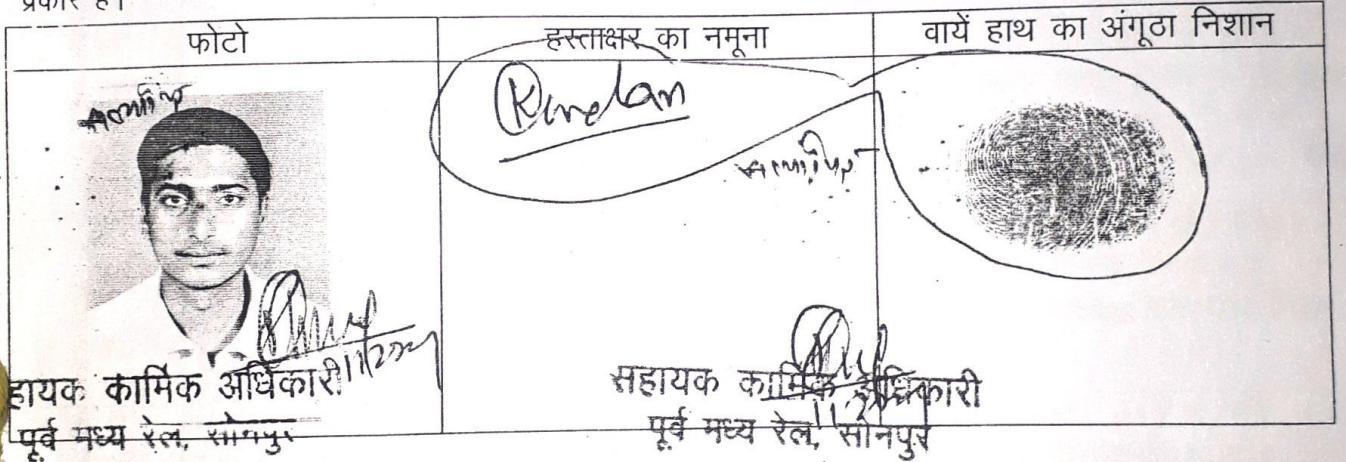 प्रकार है।
फोटो
हस्ताक्षर का नमूना
वायें हाथ का अंगूठा निशान
Kundan
हायक कार्मिक अधिकारी
पूर्व मध्य रेल, सोनपुर
सहायक कार्मिक अधिकारी
पूर्व मध्य रेल, सोनपुर